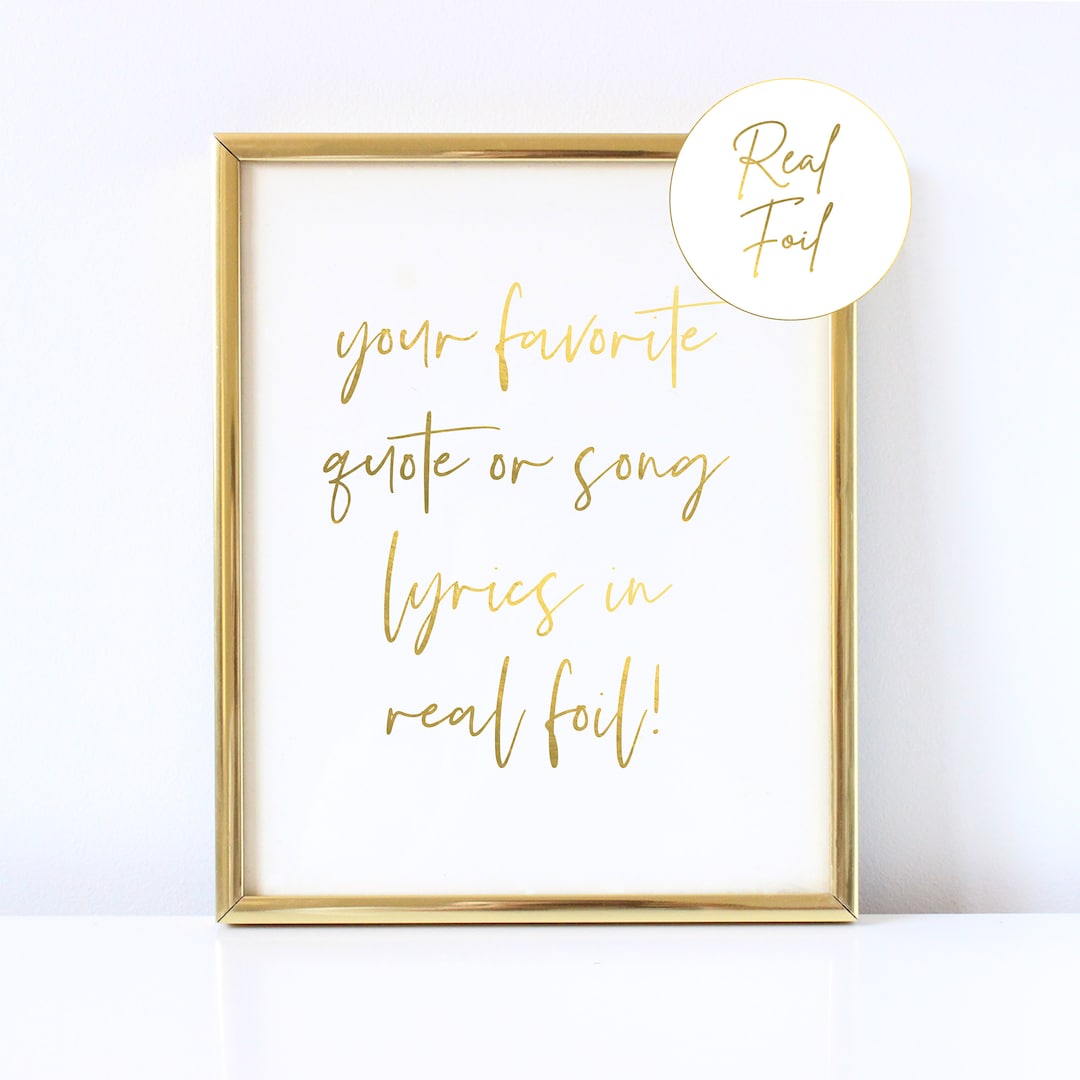 Real
Foil
your favorite
quote or song
lyrics in
real foil!